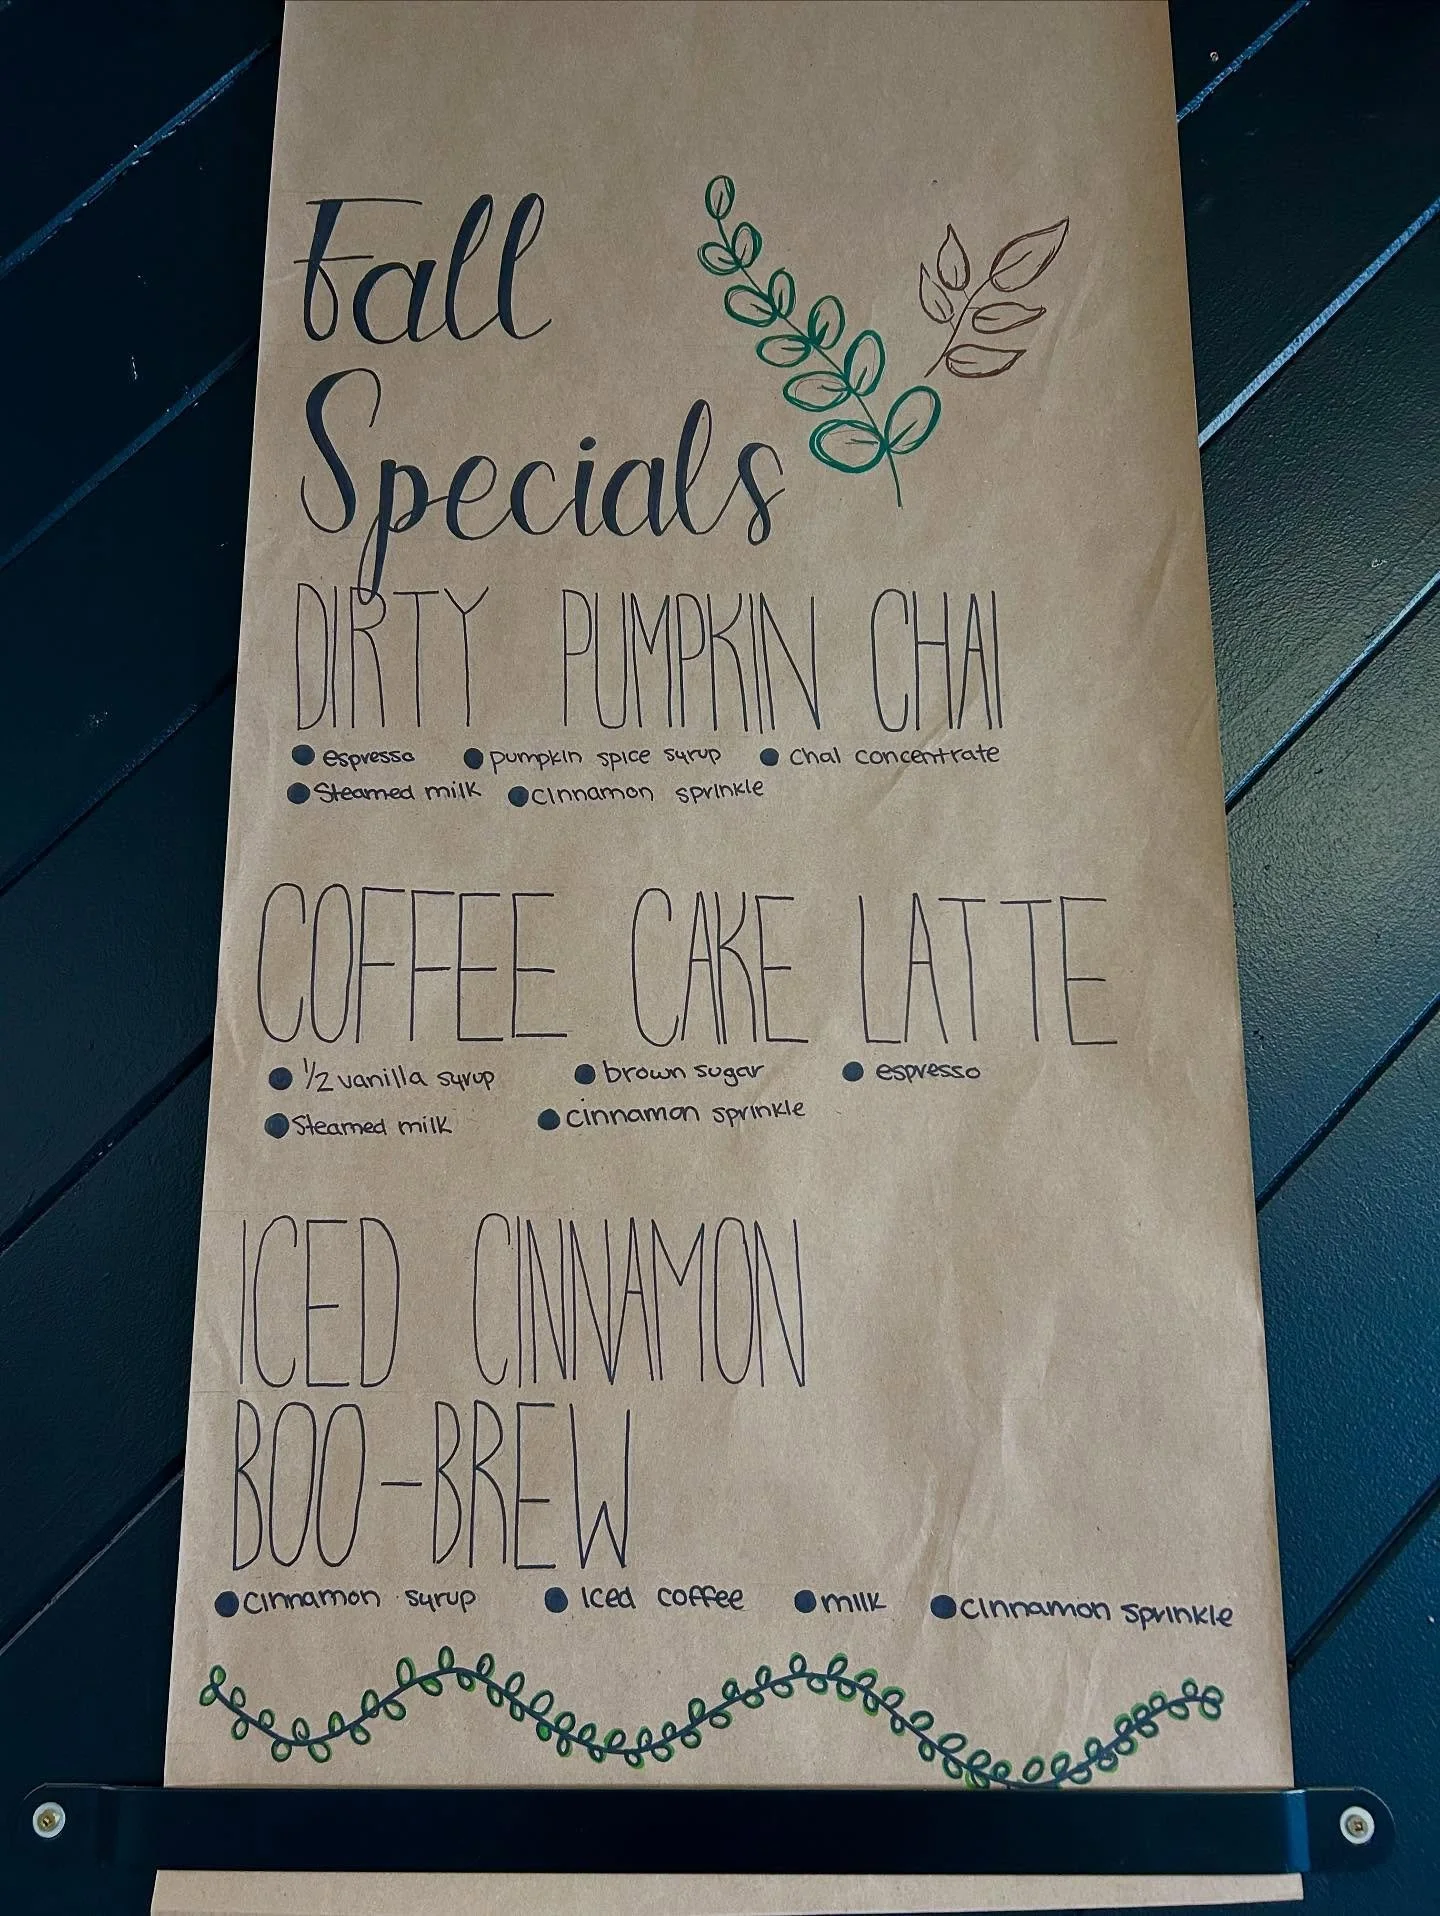 Fall
Specials
DIRTY PUMPKIN CHAI
● espresso ● pumpkin spice syrup ● chai concentrate
● Steamed milk ● cinnamon sprinkle
COFFEE CAKE LATTE
● 1/2 vanilla syrup ● brown sugar ● espresso
● Steamed milk ● cinnamon sprinkle
ICED CINNAMON
BOO-BREW
● cinnamon syrup ● Iced coffee ● milk ● cinnamon sprinkle